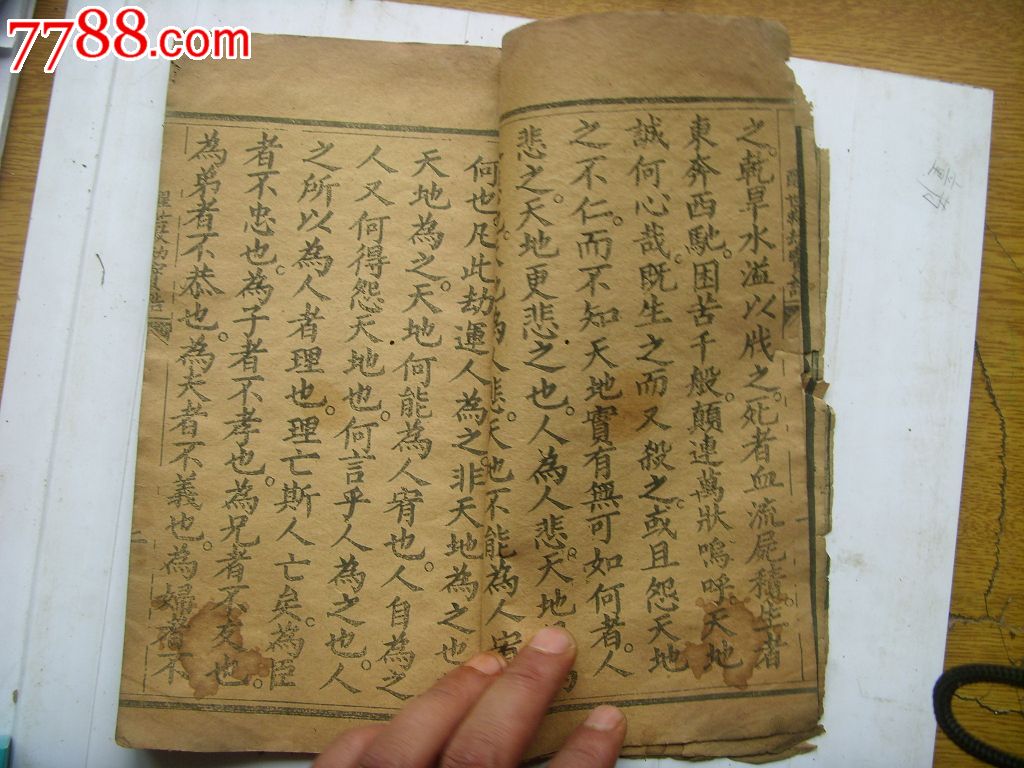 7788.com
之。乾旱水溢以戕之。死者血流屍積。生者
東奔西馳。困苦千般。顛連萬狀嗚呼天地
誠何心哉。既生之而又殺之。或且怨天地
之不仁。而不知天地實有無可如何者。人
悲之。天地更悲之也。人為人悲。天地
人悲。天地不能為人
何也凡此劫運人為之。非天地為之也
天地為之。天地何能為人宥也。人自為之
人又何得怨天地也。何言乎人為之也。人
之所以為人者理也。理亡斯人亡矣。為臣
者不忠也。為子者不孝也。為兄者不友也。
為弟者不恭也。為夫者不義也。為婦者不
二